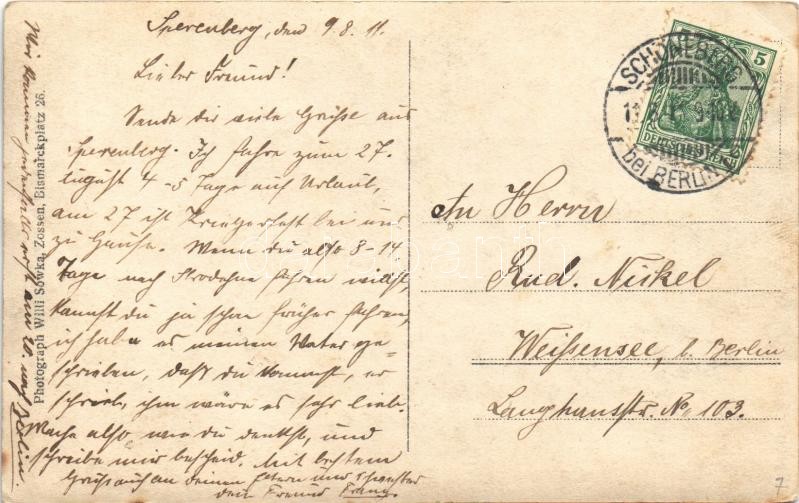 Sperenberg, den 9.8.11.
Lieber Freund!
Sende dir viele Grüße aus
Sperenberg. Ich fahre zum 27.
August 4-5 Tage auf Urlaub,
am 27 ist Kriegerfest bei uns
zu Hause. Wenn du also 8-14
Tage nach Prödehne fahren willst,
kannst du ja schon früher fahren,
ich habe es meinem Vater ge-
schrieben, daß du kommst, er
schrieb, ihm wäre es sehr lieb.
Mache also wie du denkst, und
schreibe mir bescheid. Mit bestem
Gruß auch an deinen Eltern und Schwester
dein Freund Franz
Wir kommen erst am nach Berlin.
Photograph Willi Sowka, Zossen, Bismarckplatz 26.
SCHÖNEBERG
bei BERLIN
5
DEUTSCHES REICH
An Herrn
Rud. Nickel
Weißensee, b. Berlin
Langhansstr. No. 103.
7